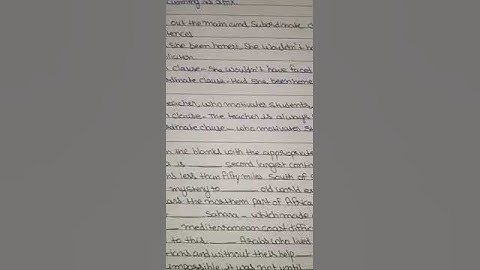 cunning as a fox.
out the main and Subordinate
tences
she been honest, She wouldn't ha
lication
clause - She wouldn't have faced
dinate clause - Had she been hone
eacher, who motivates students,
clause - The teacher is always
dinate clause - who motivates s
n the blanks with the appropriate
is ______ second largest conti
less than fifty miles South of S
mystery to ______ old world e
the northern part of Africa
______ Sahara - which made
______ mediterranean coast diffic
to this ______ Arabs who lived
and without their help
impossible it was not until